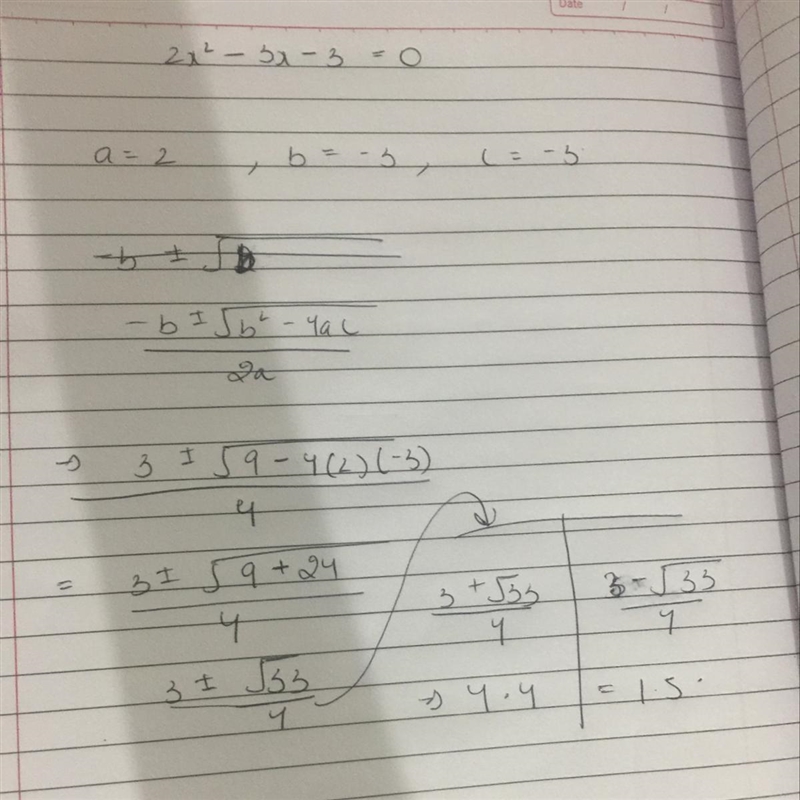 Date / /
2x² - 3x - 3 = 0
a = 2 , b = -3 , c = -3
-b ± √b
-b ± √b² - 4ac
2a
→ 3 ± √9 - 4(2)(-3)
4
= 3 ± √9 + 24
4
3 ± √33
4
3 + √33
4
→ 4.4
3 - √33
4
= 1.5.